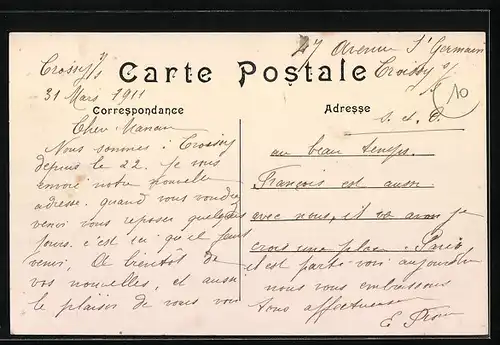 27 Avenue St Germain
Croissy s/s
Croissy s/s
31 Mars 1911
Carte Postale
Correspondance
Adresse
10
S. et O.
Cher
Nous sommes à Croissy
depuis le 22. je vous
envoie notre nouvelle
adresse. quand vous voudrez
venir vous reposer quelques
jours. c'est ici qu'il faut
venir. A bientôt de
vos nouvelles, et aussi
le plaisir de vous voir
au beau temps.
François est aussi
avec nous, il va avoir je
crois une place à Paris
il est parti voir aujourd'hui
nous vous embrassons
tous affectueusement
E.